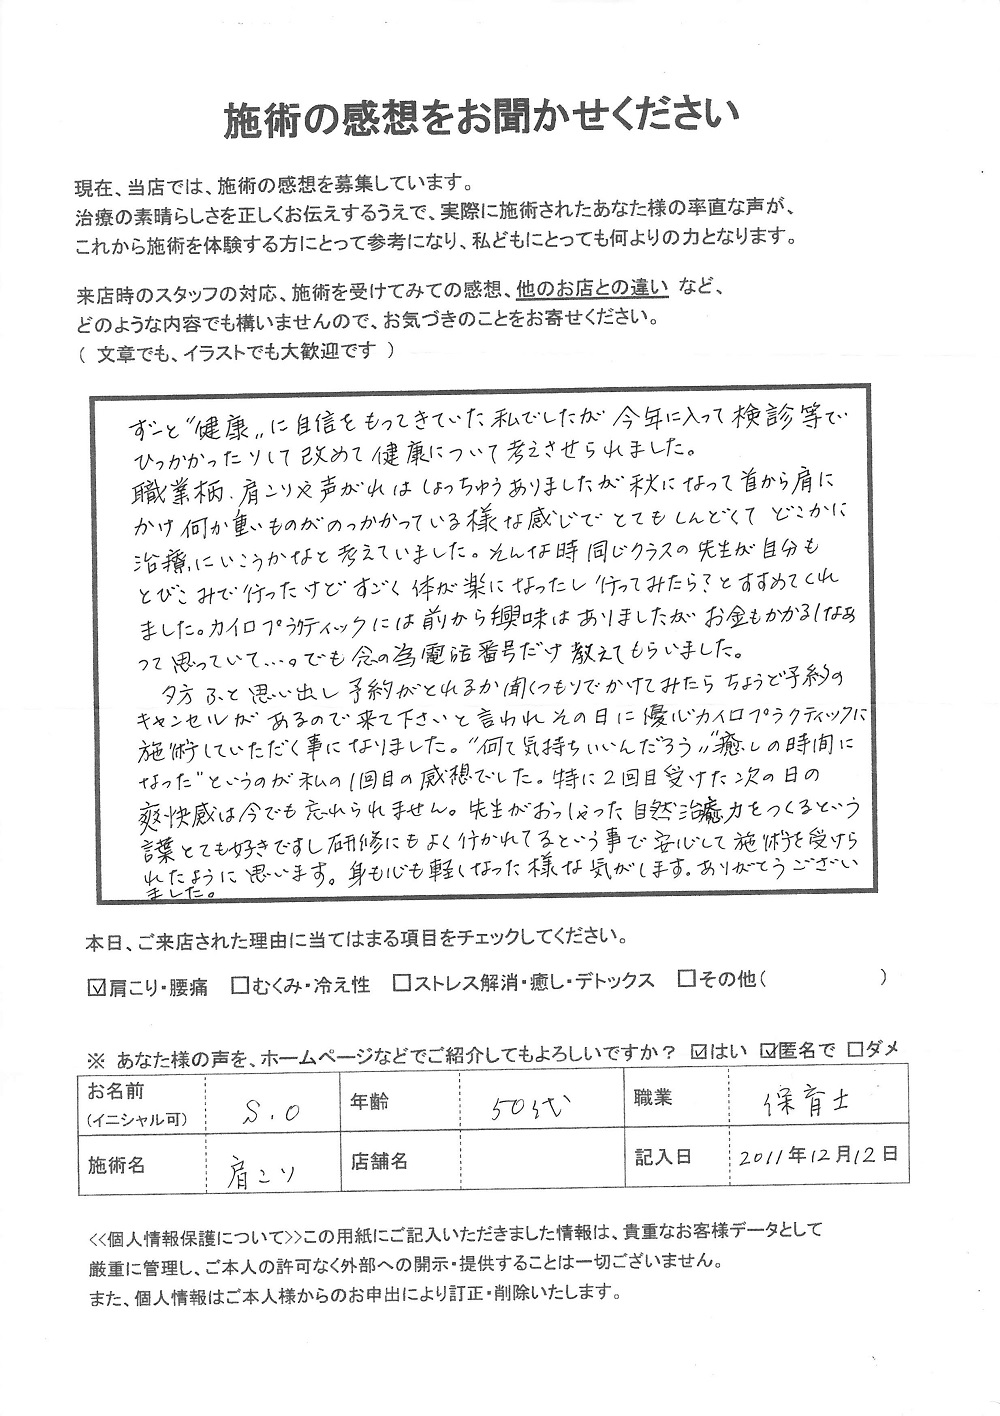 施術の感想をお聞かせください
現在、当店では、施術の感想を募集しています。
治療の素晴らしさを正しくお伝えするうえで、実際に施術されたあなた様の率直な声が、
これから施術を体験する方にとって参考になり、私どもにとっても何よりの力となります。
来店時のスタッフの対応、施術を受けてみての感想、他のお店との違い など、
どのような内容でも構いませんので、お気づきのことをお寄せください。
( 文章でも、イラストでも大歓迎です )
ずーと“健康”に自信をもってきていた私でしたが 今年に入って検診等で
ひっかかったりして改めて健康について考えさせられました。
職業柄、肩こりや声がれはしょっちゅうありましたが秋になって首から肩に
かけ何か重いものがのっかかっている様な感じでとてもしんどくてどこかに
治療にいこうかなと考えていました。そんな時同じクラスの先生が自分も
とびこみで行ったけどすごく体が楽になったし行ってみたら?とすすめてくれ
ました。カイロプラクティックには前から興味はありましたがお金もかかるしなあ
って思っていて…。でも念の為電話番号だけ教えてもらいました。
夕方ふと思い出し予約がとれるか聞くつもりでかけてみたらちょうど予約の
キャンセルがあるので来て下さいと言われその日に優心カイロプラクティックに
施術していただく事になりました。“何て気持ちいいんだろう”“癒しの時間に
なった”というのが私の1回目の感想でした。特に2回目受けた次の日の
爽快感は今でも忘れられません。先生がおっしゃった自然治癒力をつくるという
言葉とても好きですし研修にもよく行かれてるという事で安心して施術を受けら
れたように思います。身も心も軽くなった様な気がします。ありがとうござい
ました。
本日、ご来店された理由に当てはまる項目をチェックしてください。
☑肩こり・腰痛 □むくみ・冷え性 □ストレス解消・癒し・デトックス □その他( )
※ あなた様の声を、ホームページなどでご紹介してもよろしいですか? ☑はい ☑匿名で □ダメ
お名前 (イニシャル可) S.O 年齢 50代 職業 保育士
施術名 肩こり 店舗名 記入日 2011年12月12日
<<個人情報保護について>>この用紙にご記入いただきました情報は、貴重なお客様データとして
厳重に管理し、ご本人の許可なく外部への開示・提供することは一切ございません。
また、個人情報はご本人様からのお申出により訂正・削除いたします。